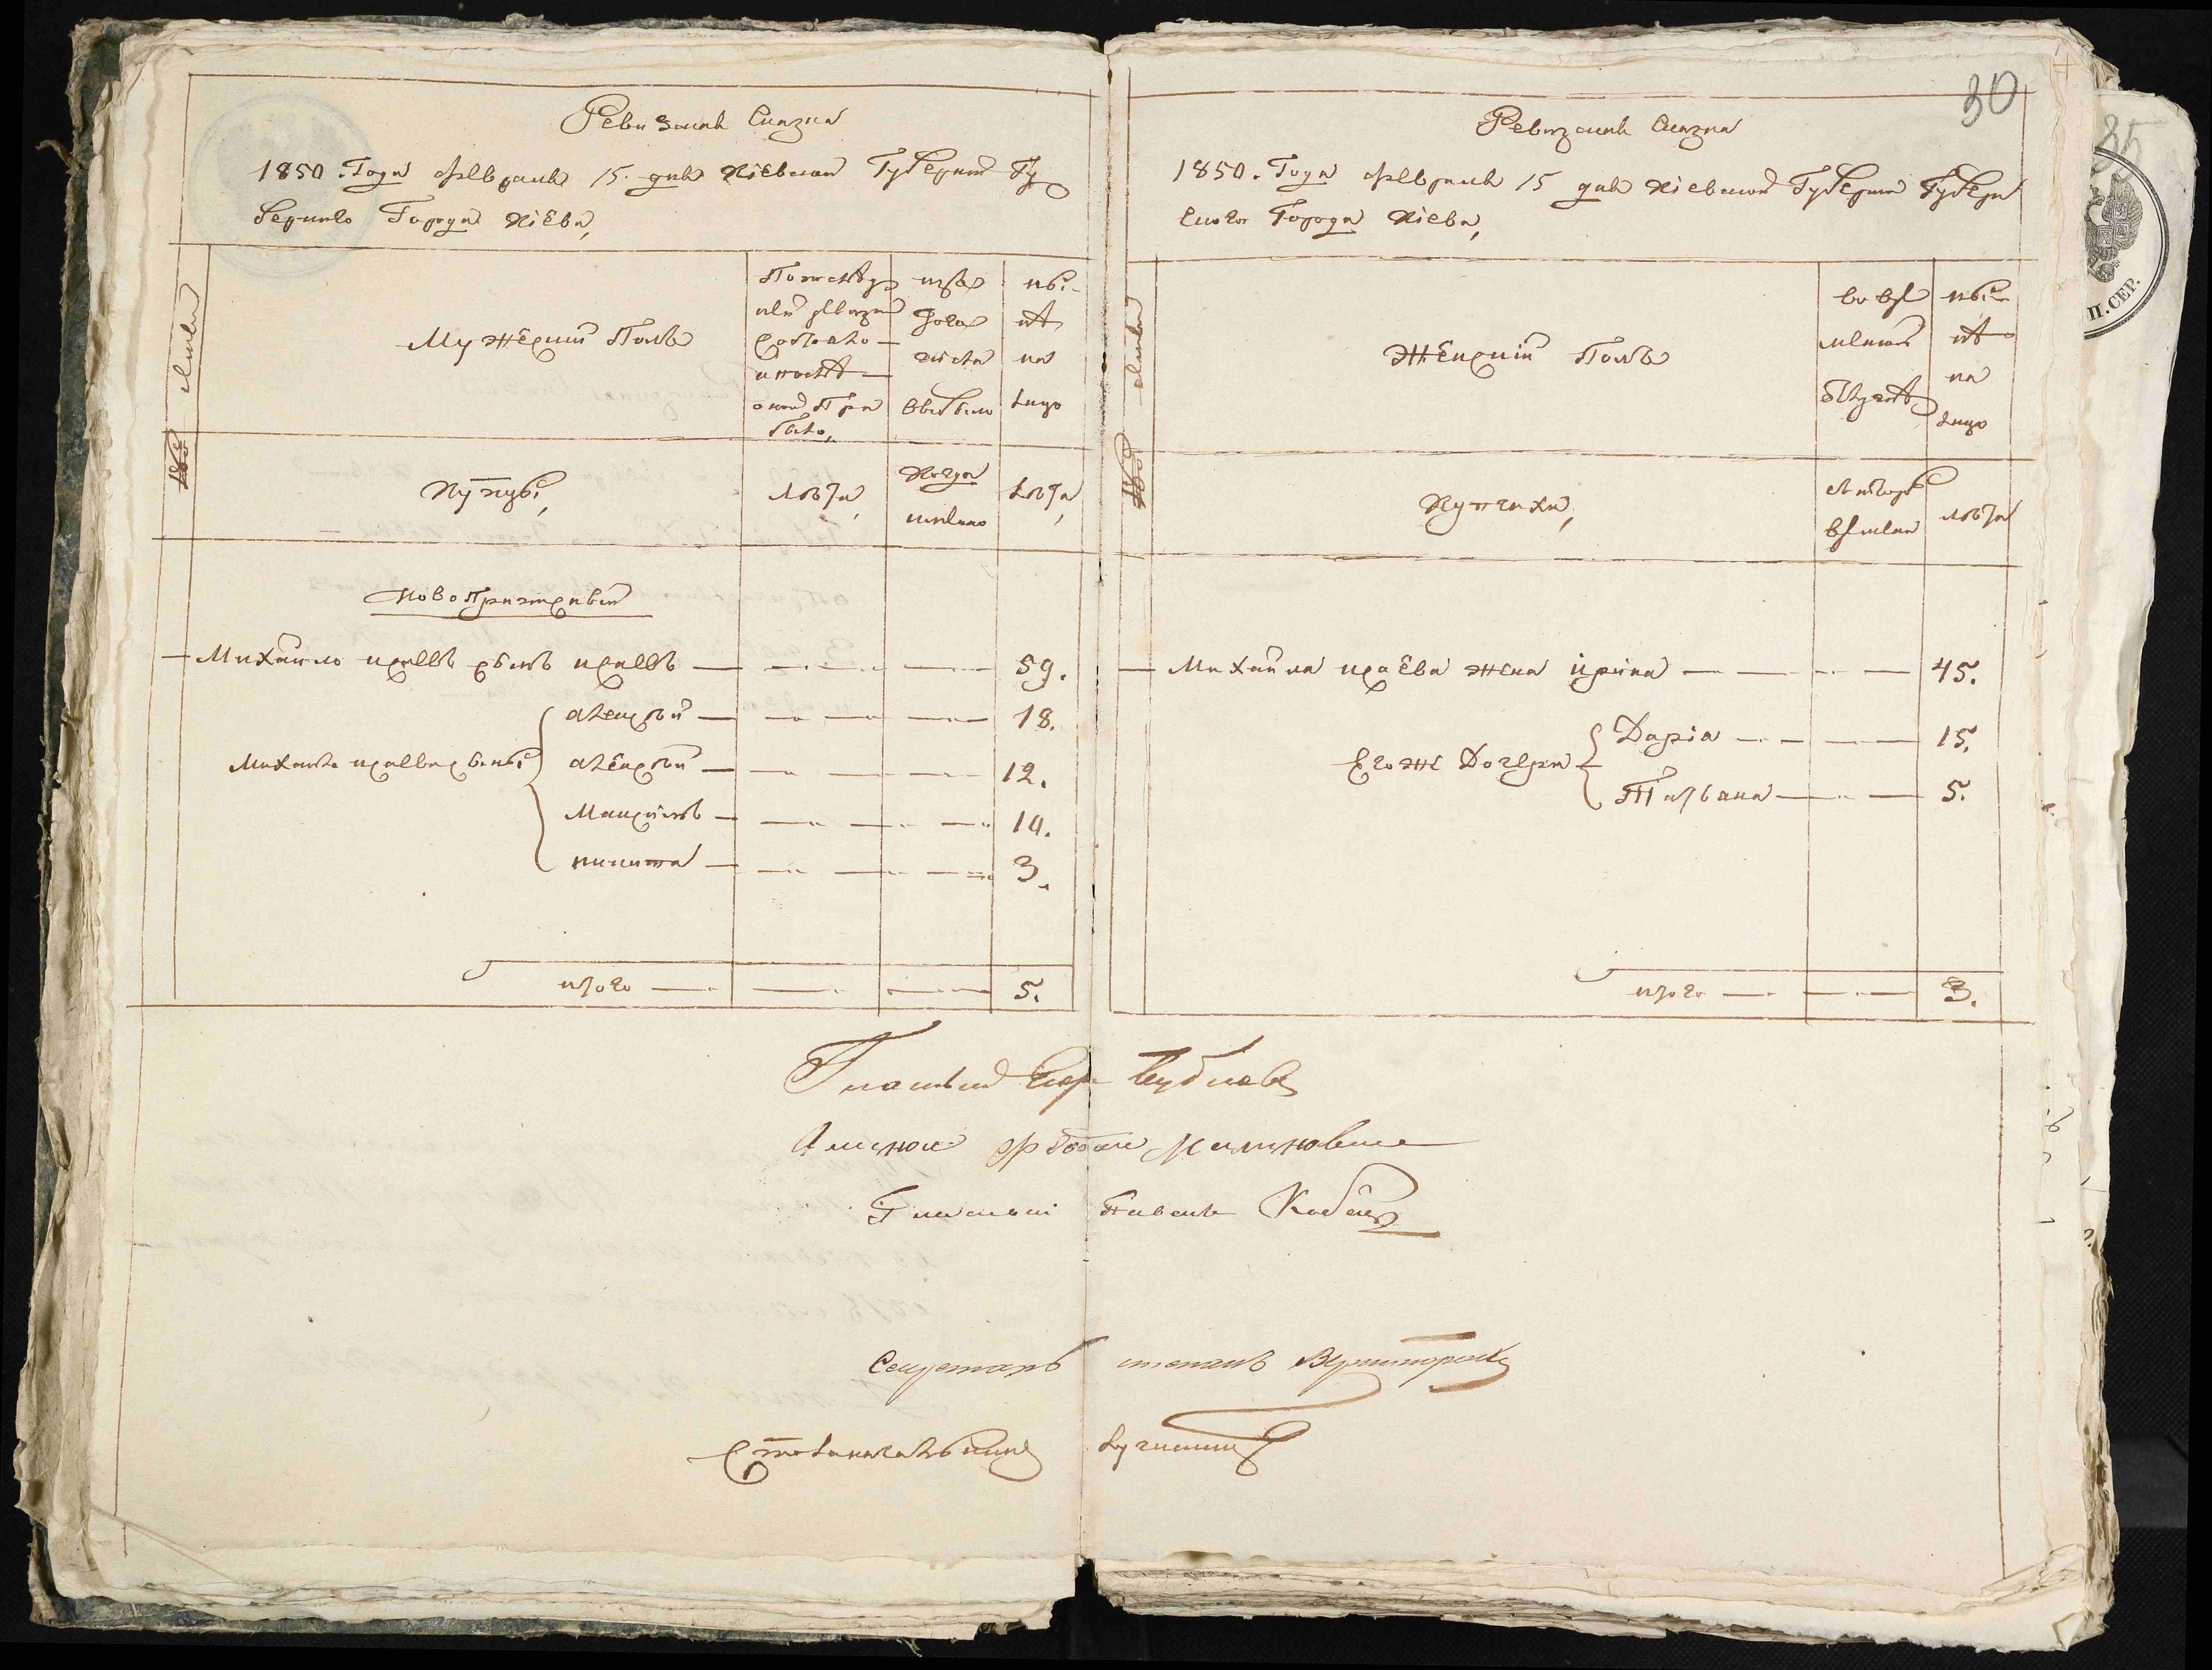 Ревизская Сказка
1850. Года февраля 15. дня Кіевской Губерніи Гу
бернского Города Кіева,
семьи
Мужескій Полъ
По последней ревизіи состояло и после оной Прибыло,
изъ того числа выбыло
ныне на лицо
Купцы,
Лета,
Когда именно
Лета,
Новопричисленный
Михайло Исаевъ сынъ Исаевъ 59.
Михайла Исаева сыны
Алексей 18.
Алексей 12.
Максимъ 10.
Никита 3.
итого 5.
30
Ревизская Сказка
1850. Года февраля 15 дня Кіевской Губерніи Губерн
ского Города Кіева,
семьи
Женскій Полъ
во временной отлучке
ныне на лицо
Купчихи,
с которого времени
Лета
Михайла Исаева жена Ирина 45.
Его же Дочери
Дарія 15.
Татьяна 5.
итого 3.
Гласный
Гласный Павелъ
Секретарь Степанъ
Столоначальникъ
П. СЕР.